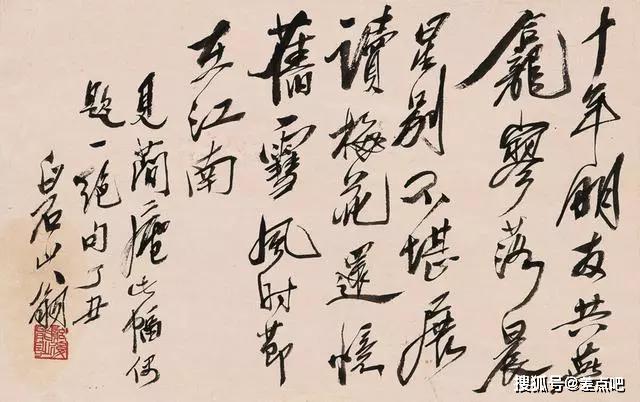 十年朋友共燕
龕寥落晨
星别不堪展
讀梅花還憶
舊雪風时節
在江南
見簡庵此幅偶
題一絕句丁丑
白石山翁
搜狐号@差点吧